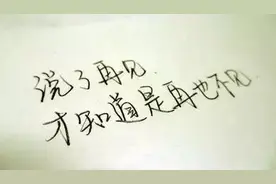 说了再见.
才知道是再也不见